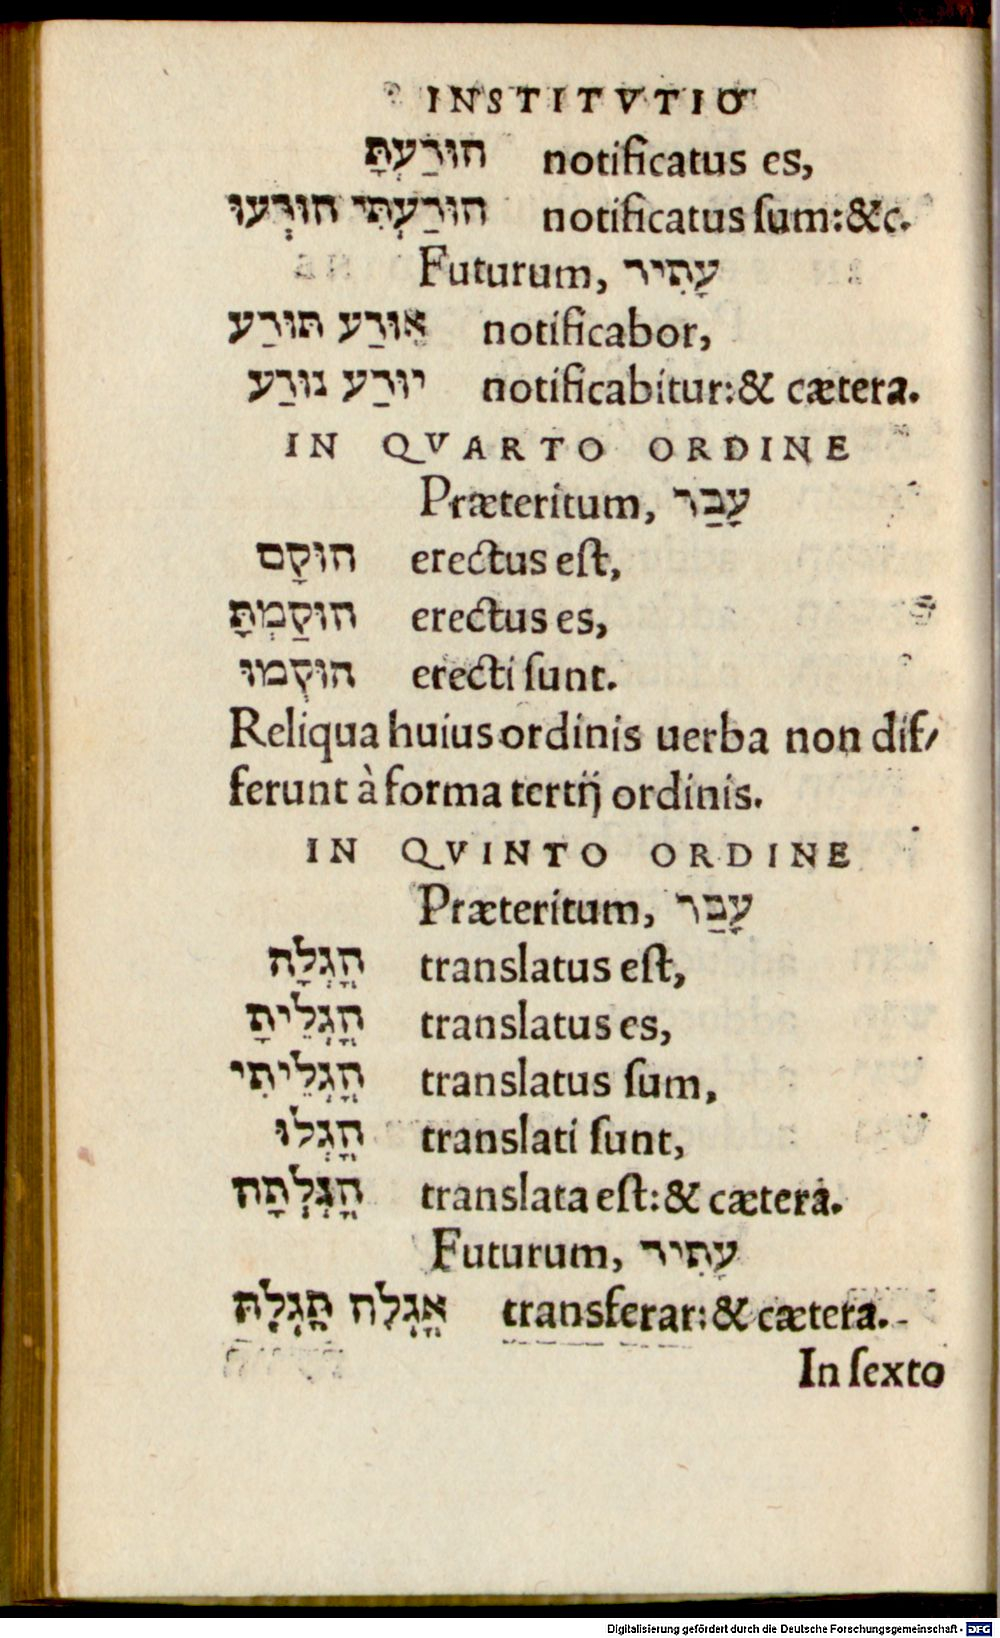 INSTITVTIO
הוּרַעְתָּ notificatus es,
הוּרַעְתִּי הוּרְעוּ notificatus ſum: &c.
Futurum, עָתִיר
אוּרַע תּוּרַע notificabor,
יוּרַע נוּרַע notificabitur: & cætera.
IN QVARTO ORDINE
Præteritum, עָבַר
הוּקָם erectus eſt,
הוּקַמְתָּ erectus es,
הוּקְמוּ erecti ſunt.
Reliqua huius ordinis uerba non dif/
ferunt à forma tertij ordinis.
IN QVINTO ORDINE
Præteritum, עָבַר
הָגְלָה translatus eſt,
הָגְלֵיתָ translatus es,
הָגְלֵיתִי translatus ſum,
הָגְלוּ translati ſunt,
הָגְלְתָה translata eſt: & cætera.
Futurum, עָתִיר
אָגְלָה תָּגְלָה transferar: & cætera.
In ſexto
Digitalisierung gefördert durch die Deutsche Forschungsgemeinschaft - DFG